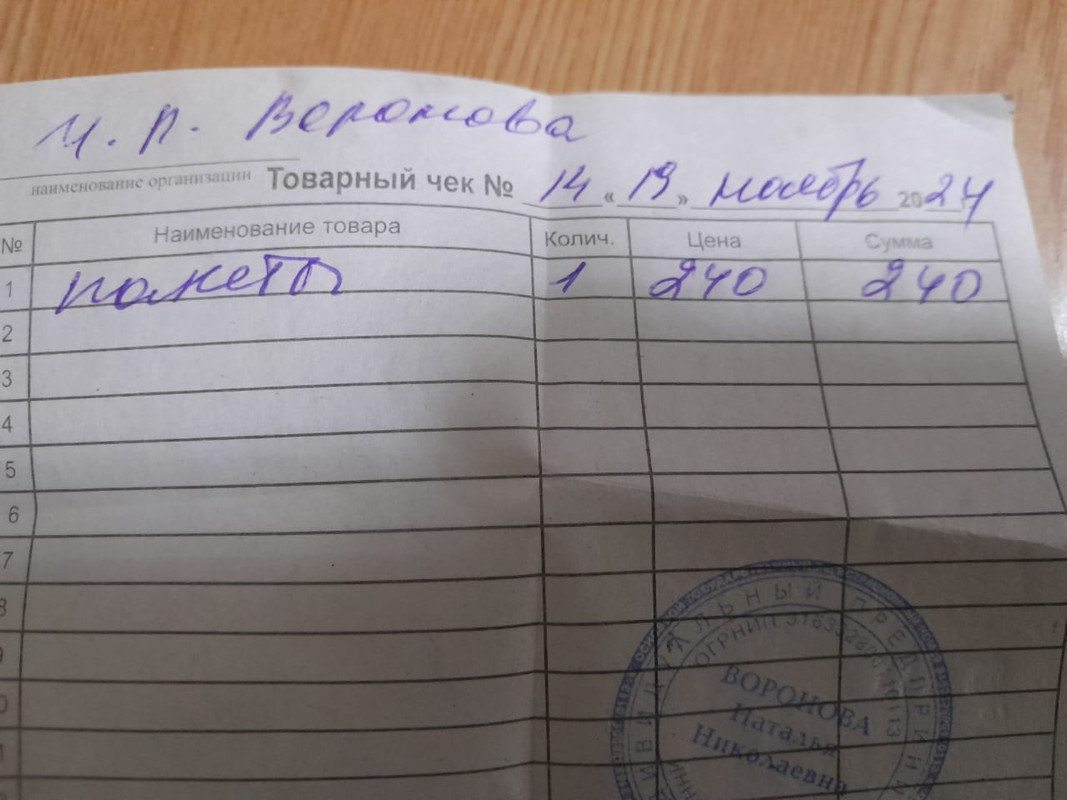 И.П. Воронова
наименование организации Товарный чек № 14 «19» ноябрь 2024
№ Наименование товара Колич. Цена Сумма
1 пакеты 1 240 240
2
3
4
5
6
7
8
9
0
1
ИНДИВИДУАЛЬНЫЙ ПРЕДПРИНИ
ОГРНИП
ВОРОНОВА
Наталья
Николаевна
ИНН